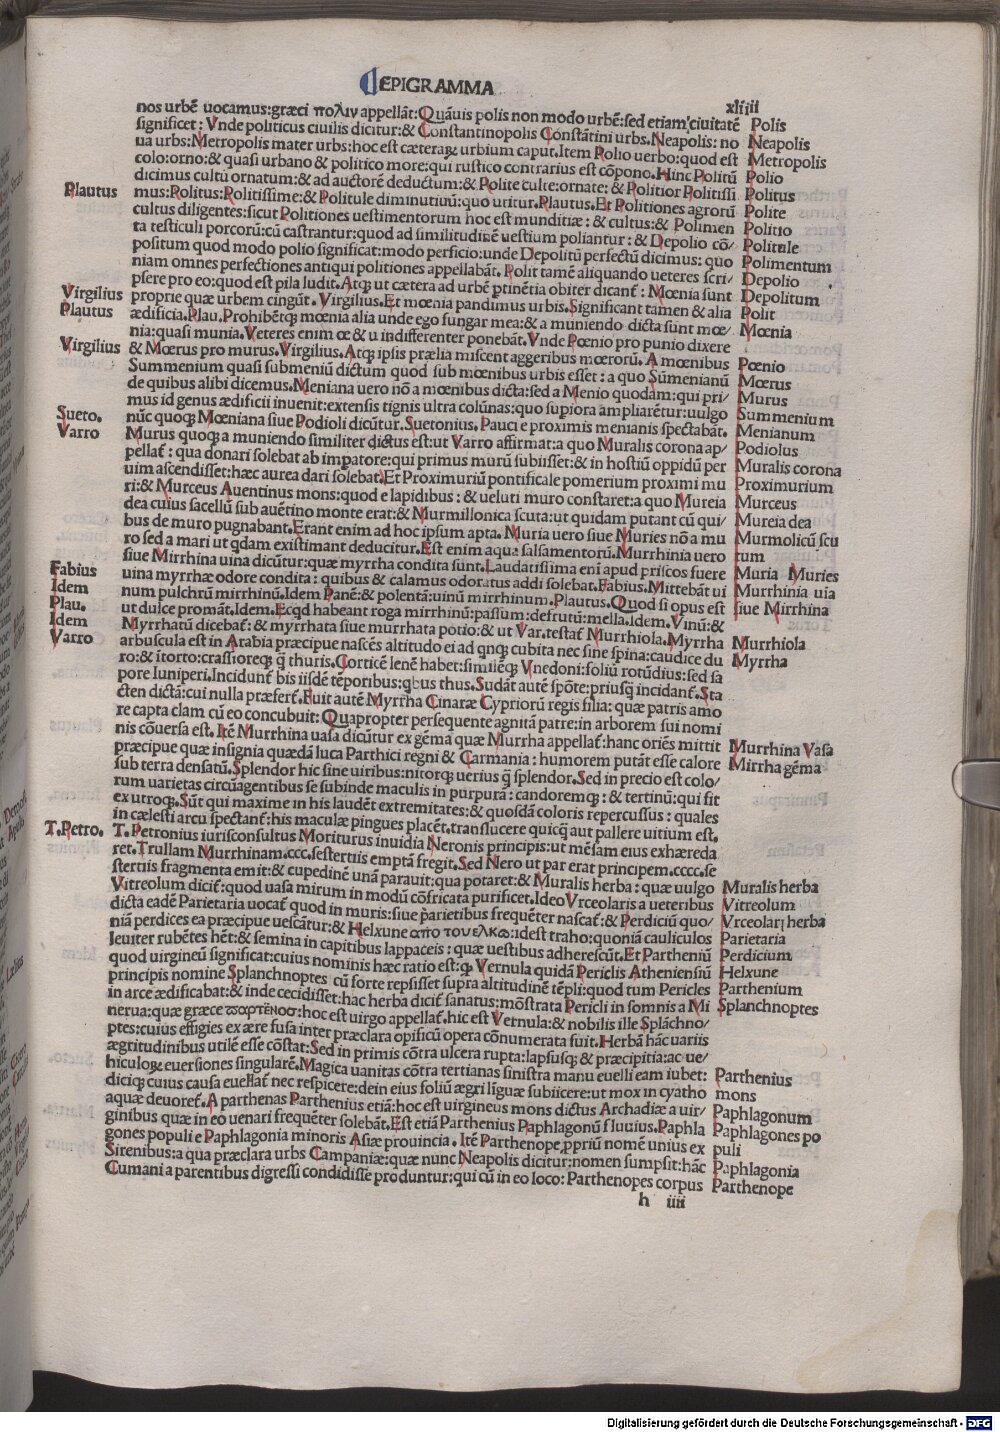 EPIGRAMMA
xliiii
nos urbē uocamus:græci πολιν appellāt:Quāuis polis non modo urbē:sed etiam ciuitatē Polis
significet:Vnde politicus ciuilis dicitur:& Constantinopolis Constātini urbs.Neapolis: no Neapolis
ua urbs:Metropolis mater urbs:hoc est cæteraꝝ urbium caput.Item Polio uerbo:quod est Metropolis
colo:orno:& quasi urbano & politico more:qui rustico contrarius est cōpono.Hinc Politū Polio
Plautus dicimus cultū ornatum:& ad auctorē deductum:& Polite culte:ornate:& Politior Politissi Politus
mus:Politus:Politissime:& Politule diminutiuū:quo utitur.Plautus.Et Politiones agrorū Polite
cultus diligentes:sicut Politiones uestimentorum hoc est munditiæ:& cultus:& Polimen Politio
ta testiculi porcorū:cū castrantur:quod ad similitudinē uestium poliantur:& Depolio cō/ Politule
positum quod modo polio significat:modo perficio:unde Depolitū perfectū dicimus: quo Polimentum
niam omnes perfectiones antiqui politiones appellabāt.Polit tamē aliquando ueteres scri/ Depolio
psere pro eo:quod est pila ludit.Atqꝫ ut cætera ad urbē ptinētia obiter dicant̄:Mœnia sunt Depolitum
Virgilius proprie quæ urbem cingūt.Virgilius.Et mœnia pandimus urbis.Significant tamen & alia Polit
Plautus ædificia.Plau.Prohibētqꝫ mœnia alia unde ego fungar mea:& a muniendo dicta sunt mœ/ Mœnia
nia:quasi munia.Veteres enim œ & u indifferenter ponebāt.Vnde Pœnio pro punio dixere
Virgilius & Mœrus pro murus.Virgilius.Atqꝫ ipsis prælia miscent aggeribus mœrorū.A mœnibus Pœnio
Summenium quasi submeniū dictum quod sub mœnibus urbis esset:a quo Sūmenianū Mœrus
de quibus alibi dicemus.Meniana uero nō a mœnibus dicta:sed a Menio quodam:qui pri/ Murus
mus id genus ædificii inuenit:extensis tignis ultra colūnas:quo supiora ampliarētur:uulgo Summenium
Sueto. nūc quoqꝫ Mœniana siue Podioli dicūtur.Suetonius.Pauci e proximis menianis spectabāt. Menianum
Varro Murus quoqꝫ a muniendo similiter dictus est:ut Varro affirmat:a quo Muralis corona ap/ Podiolus
pellat̄:qua donari solebat ab impatore:qui primus murū subiisset:& in hostiū oppidū per Muralis corona
uim ascendisset:hæc aurea dari solebat.Et Proximuriū pontificale pomerium proximi mu Proximurium
ri:& Murceus Auentinus mons:quod e lapidibus:& ueluti muro constaret:a quo Mureia Murceus
dea cuius sacellū sub auētino monte erat:& Murmillonica scuta:ut quidam putant cū qui/ Mureia dea
bus de muro pugnabant.Erant enim ad hoc ipsum apta.Muria uero siue Muries nō a mu Murmolicū scu
ro sed a mari ut qdam existimant deducitur.Est enim aqua salsamentorū.Murrhinia uero tum
siue Mirrhina uina dicūtur:quæ myrrha condita sunt.Laudatissima eni apud priscos fuere Muria Muries
Fabius uina myrrhæ odore condita:quibus & calamus odoratus addi solebat.Fabius.Mittebāt ui Murrhinia uia
Idem num pulchrū mirrhinū.Idem Panē:& polentā:uinū mirrhinum.Plautus.Quod si opus est siue Mirrhina
Plau. ut dulce promāt.Idem.Ecqd habeant roga mirrhinū:passum:defrutū:mella.Idem.Vinū:&
Idem Myrrhatū dicebat̄:& myrrhata siue murrhata potio:& ut Var.testat̄ Murrhiola.Myrrha Murrhiola
Varro arbuscula est in Arabia præcipue nascēs altitudo ei ad qnqꝫ cubita nec sine spina:caudice du Myrrha
ro:& ītorto:crassioreqꝫ q̄ thuris.Corticē lenē habet:similēqꝫ Vnedoni:foliū rotūdius:sed sa
pore Iuniperi.Incidunt̄ bis iisdē tēporibus:qbus thus.Sudāt autē spōte:priusq̄ incidant̄.Sta
cten dictā:cui nulla præfert̄.Fuit autē Myrrha Cinaræ Cypriorū regis filia:quæ patris amo
re capta clam cū eo concubuit:Quapropter persequente agnitā patre:in arborem sui nomi
nis cōuersa est.Itē Murrhina uasa dicūtur ex gēma quæ Murrha appellat̄:hanc oriēs mittit Murrhina Vasa
præcipue quæ insignia quædā luca Parthici regni & Carmania:humorem putāt esse calore Mirrha gēma
sub terra densatū.Splendor hic sine uiribus:nitorqꝫ uerius q̄ splendor.Sed in precio est colo/
rum uarietas circūagentibus se subinde maculis in purpurā:candoremqꝫ:& tertinū:qui fit
ex utroqꝫ.Sūt qui maxime in his laudēt extremitates:& quosdā coloris repercussus:quales
in cælesti arcu spectant̄:his maculæ pingues placēt.translucere quicq̄ aut pallere uitium est.
T.Petro. T.Petronius iurisconsultus Moriturus inuidia Neronis principis:ut mēsam eius exhæreda
ret.Trullam Murrhinam.ccc.sestertiis emptā fregit.Sed Nero ut par erat principem.cccc.se
stertiis fragmenta emit:& cupedinē unā parauit:qua potaret:& Muralis herba:quæ uulgo Muralis herba
Vitreolum dicit̄:quod uasa mirum in modū cōfricata purificet.Ideo Vrceolaris a ueteribus Vitreolum
dicta eadē Parietaria uocat̄ quod in muris:siue parietibus frequēter nascat̄:& Perdiciū quo/ Vrceolaris herba
niā perdices ea præcipue uescātur:& Helxune απο του ελκω:idest traho:quoniā cauliculos Parietaria
leuiter rubētes hēt:& semina in capitibus lappaceis:quæ uestibus adherescūt.Et Partheniū Perdicium
quod uirgineū significat:cuius nominis hæc ratio est:qꝫ Vernula quidā Periclis Atheniensiū Helxune
principis nomine Splanchnoptes cū forte repsisset supra altitudinē tēpli:quod tum Pericles Parthenium
in arce ædificabat:& inde cecidisset:hac herba dicit̄ sanatus:mōstrata Pericli in somnis a Mi Splanchnoptes
nerua:quæ græce παρτενοσ:hoc est uirgo appellat̄.hic est Vernula:& nobilis ille Splāchno/
ptes:cuius effigies ex ære fusa inter præclara opificū opera cōnumerata fuit.Herbā hāc uariis
ægritudinibus utilē esse cōstat:Sed in primis cōtra ulcera rupta:lapsusqꝫ:& præcipitia:ac ue/
hiculoꝝ euersiones singularē.Magica uanitas cōtra tertianas sinistra manu euelli eam iubet: Parthenius
diciqꝫ cuius causa euellat̄ nec respicere:dein eius foliū ægri liguæ subiicere:ut mox in cyatho mons
aquæ deuoret̄.A parthenas Parthenius etiā:hoc est uirgineus mons dictus Archadiæ a uir/ Paphlagonum
ginibus quæ in eo uenari frequēter solebāt.Est etiā Parthenius Paphlagonū fluuius.Paphla Paphlagones po
gones populi e Paphlagonia minoris Asiæ prouincia.Itē Parthenope ꝓpriū nomē unius ex puli
Sirenibus:a qua præclara urbs Campaniæ:quæ nunc Neapolis dicitur:nomen sumpsit:hāc Paphlagonia
Cumani a parentibus digressi condidisse produntur:qui cū in eo loco:Parthenopes corpus Parthenope
h iiii
Digitalisierung gefördert durch die Deutsche Forschungsgemeinschaft - DFG